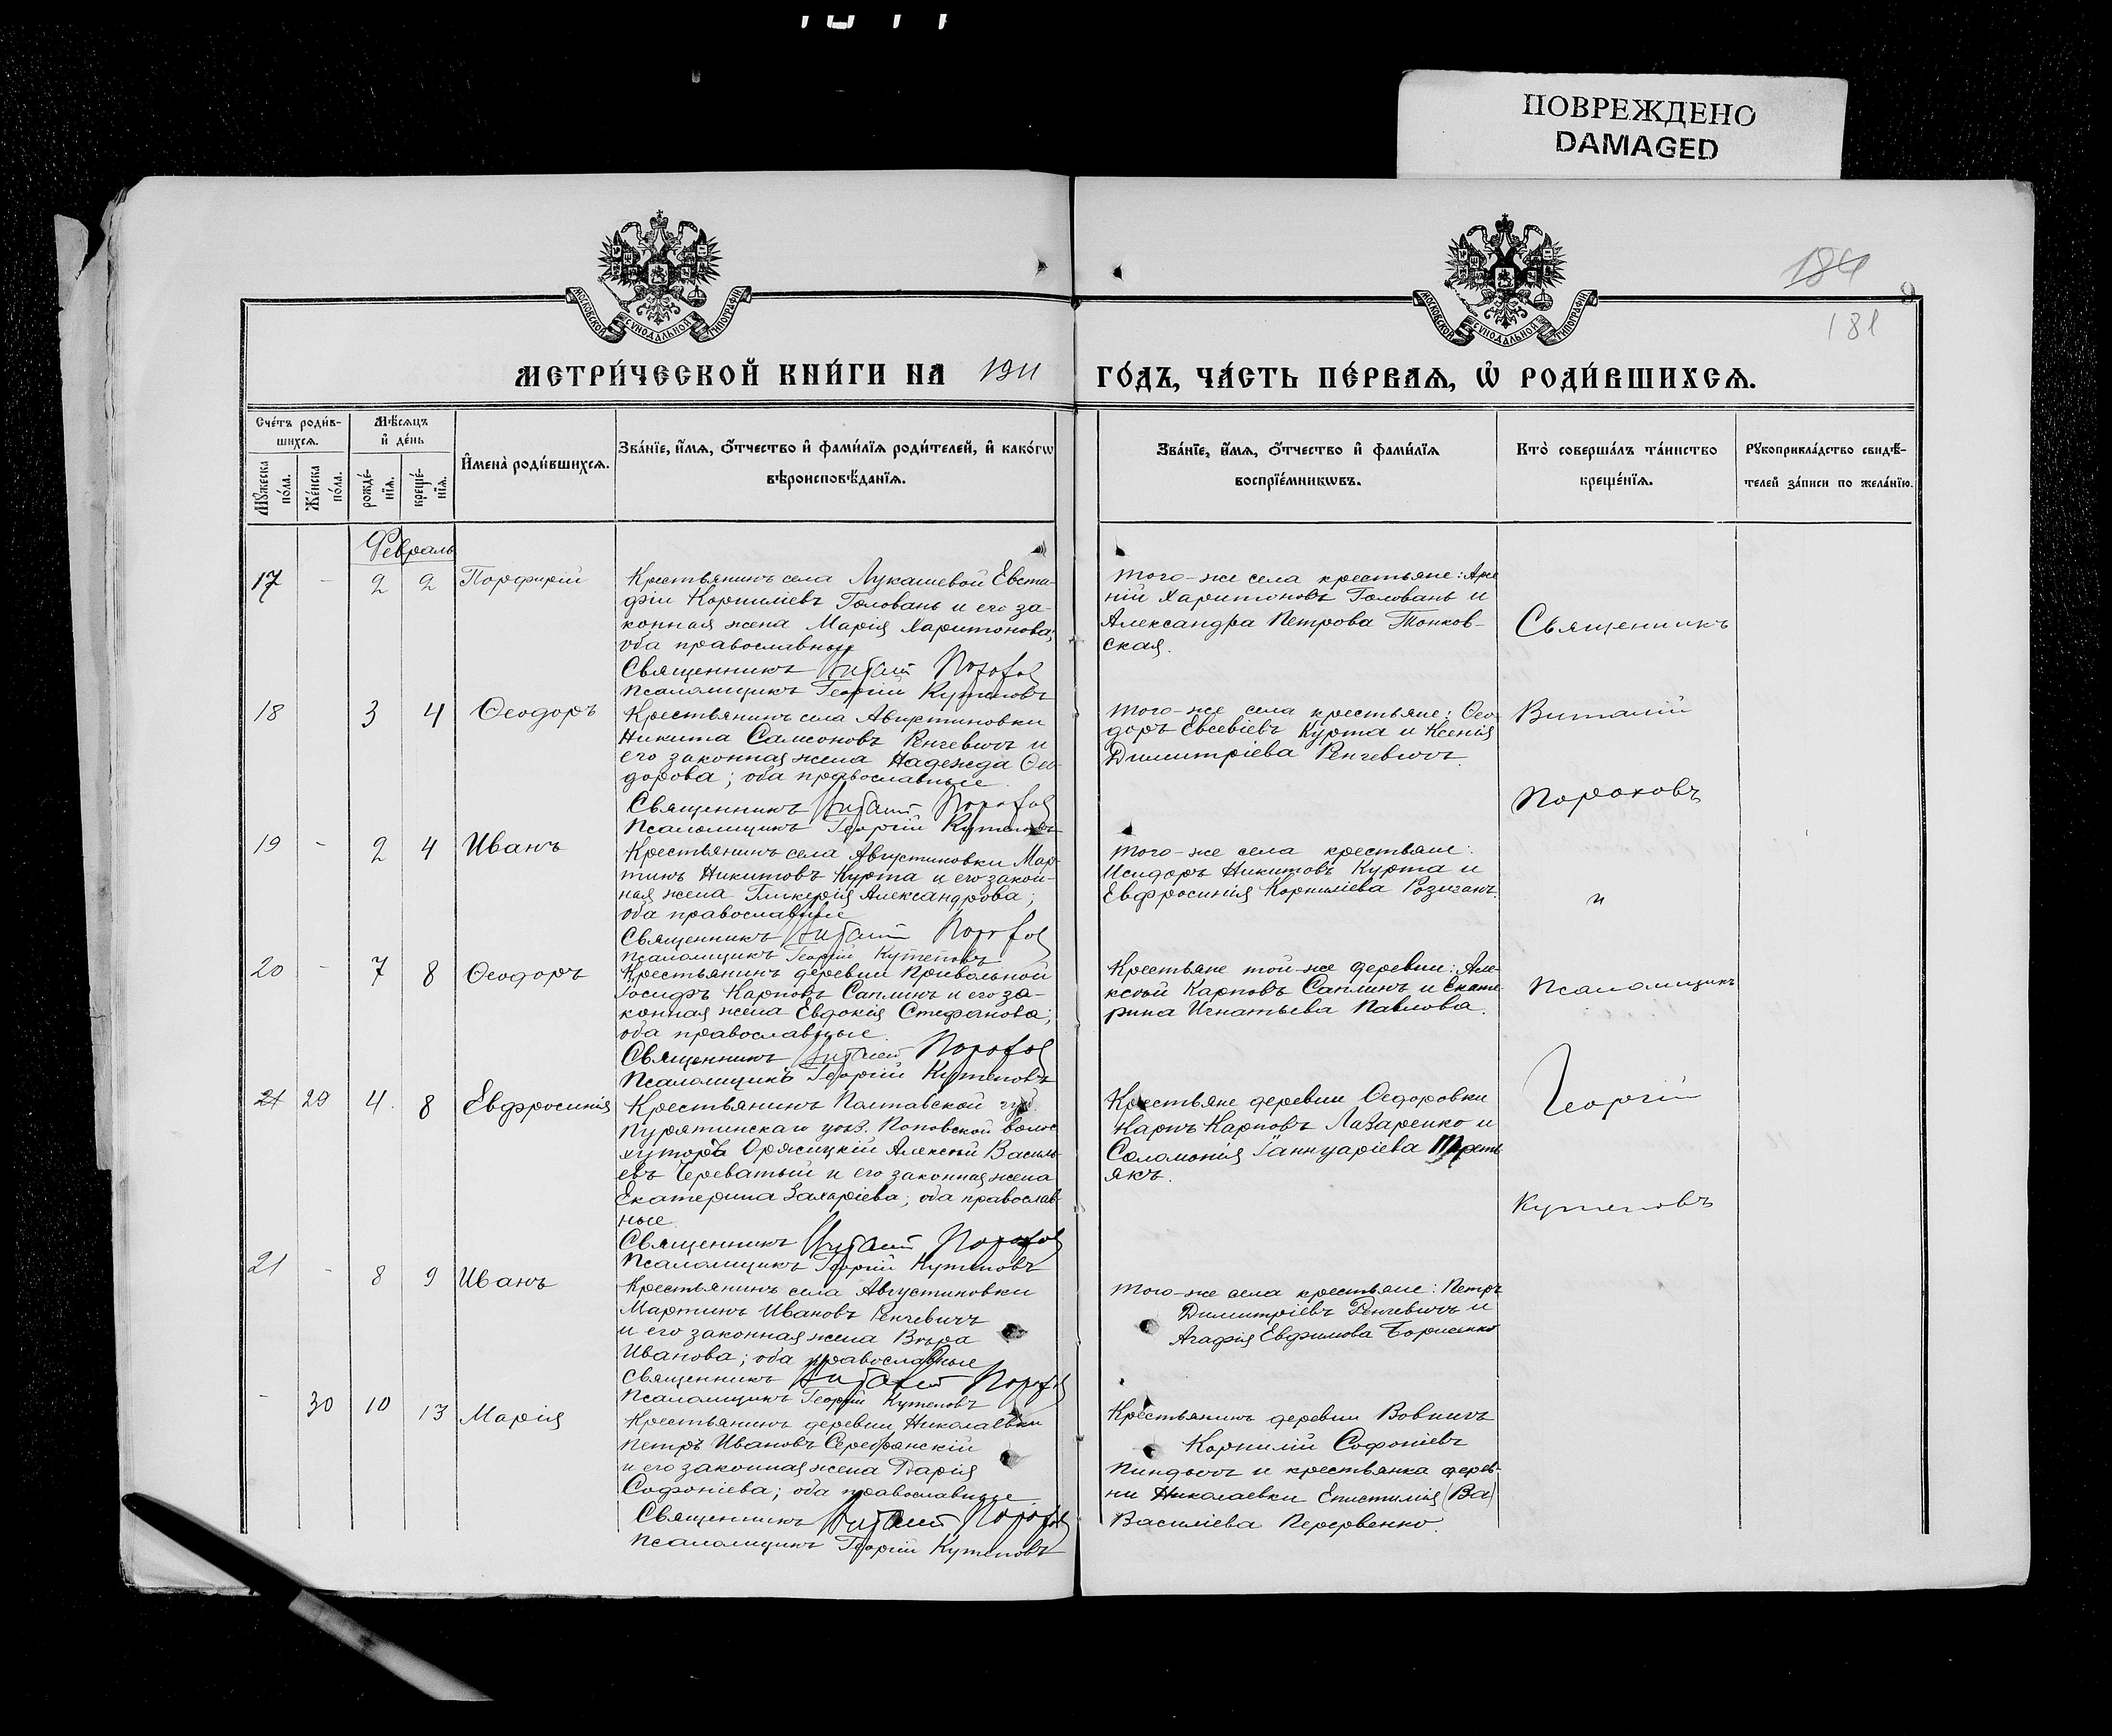 ПОВРЕЖДЕНО
DAMAGED
184
181
9
МОСКОВСКОЙ СѴНОДАЛЬНОЙ ТИПОГРАФІИ
МОСКОВСКОЙ СѴНОДАЛЬНОЙ ТИПОГРАФІИ
МЕТРИ́ЧЕСКОЙ КНИ́ГИ НА 1911 ГО́ДЪ, ЧА́СТЬ ПЕ́РВАѦ, Ѡ҆ РОДИ́ВШИХСѦ.
Сче́тъ роди́в-
шихсѧ.
Мѣ́сѧцъ
и҆ де́нь
Мꙋ́жеска
по́ла.
Же́нска
по́ла.
рожде́-
нїѧ.
креще́-
нїѧ.
И҆мена̀ роди́вшихсѧ.
Зва́нїе, и҆́мѧ, ѻ҆́тчество и҆ фами́лїѧ роди́телей, и҆ како́гѡ
вѣроисповѣ́данїѧ.
Зва́нїе, и҆́мѧ, ѻ҆́тчество и҆ фами́лїѧ
воспрїе́мникѡвъ.
Кто̀ соверша́лъ та́инство
креще́нїѧ.
Рꙋкоприкла́дство свидѣ́-
телей за́писи по жела́нїю.
Февраль
17 - 2 2 Порфирій
Крестьянинъ села Лукашевой Евста-
фій Корниліевъ Головань и его за-
конная жена Марія Харитонова;
оба православные
Священникъ Виталій Пороховъ
Псаломщикъ Георгій Кутеповъ
того-же села крестьяне: Арсе
ній Харитоновъ Головань и
Александра Петрова Тонков-
ская.
Священникъ
18 3 4 Ѳеодоръ
Крестьянинъ села Августиновки
Никита Самсоновъ Ренчевичъ и
его законная жена Надежда Ѳео-
дорова; оба православные.
Священникъ Виталій Пороховъ
Псаломщикъ Георгій Кутеповъ
того-же села крестьяне: Ѳео-
доръ Евсевіевъ Курта и Ксенія
Димитріева Ренчевичъ.
Виталій
Пороховъ
19 - 2 4 Иванъ
Крестьянинъ села Августиновки Мар-
тинъ Никитовъ Курта и его закон-
ная жена Гликерія Александрова;
оба православные
Священникъ Виталій Пороховъ
Псаломщикъ Георгій Кутеповъ
того-же села крестьяне:
Исидоръ Никитовъ Курта и
Евфросинія Корниліева Розиганъ.
и
20 - 7 8 Ѳеодоръ
Крестьянинъ деревни Привольной
Іосифъ Карповъ Саплинъ и его за-
конная жена Евдокія Стефанова;
оба православные.
Священникъ Виталій Пороховъ
Псаломщикъ Георгій Кутеповъ
Крестьяне той-же деревни: Але-
ксѣй Карповъ Саплинъ и Екате-
рина Игнатьева Павлова.
Псаломщикъ
21 29 4. 8 Евфросинія
Крестьянинъ Полтавской губ.
Пирятинскаго уѣз. Поповской волос
хутора Оржицкій Алексѣй Василь-
евъ Череватый и его законная жена
Екатерина Захаріева; оба православ-
ные
Священникъ Виталій Пороховъ
Псаломщикъ Георгій Кутеповъ
Крестьяне деревни Ѳедоровки
Карпъ Карповъ Лазаренко и
Соломонія Іаннуаріева Треть
якъ.
Георгій
Кутеповъ
21 - 8 9 Иванъ
Крестьянинъ села Августиновки
Мартинъ Ивановъ Ренчевичъ
и его законная жена Вѣра
Иванова; оба православные
Священникъ Виталій Пороховъ
Псаломщикъ Георгій Кутеповъ
того-же села крестьяне: Петръ
Димитріевъ Ренчевичъ и
Агафія Евфимова Борисенко
- 30 10 13 Марія
Крестьянинъ деревни Николаевки
Петръ Ивановъ Серебрянскій
и его законная жена Дарія
Софоніева; оба православные
Священникъ Виталій Пороховъ
Псаломщикъ Георгій Кутеповъ
Крестьянинъ деревни Вовнигъ
Корнилій Софоніевъ
Пиндичъ и крестьянка дерев-
ни Николаевки Епистимія (Ва)
Василіева Перервенко.